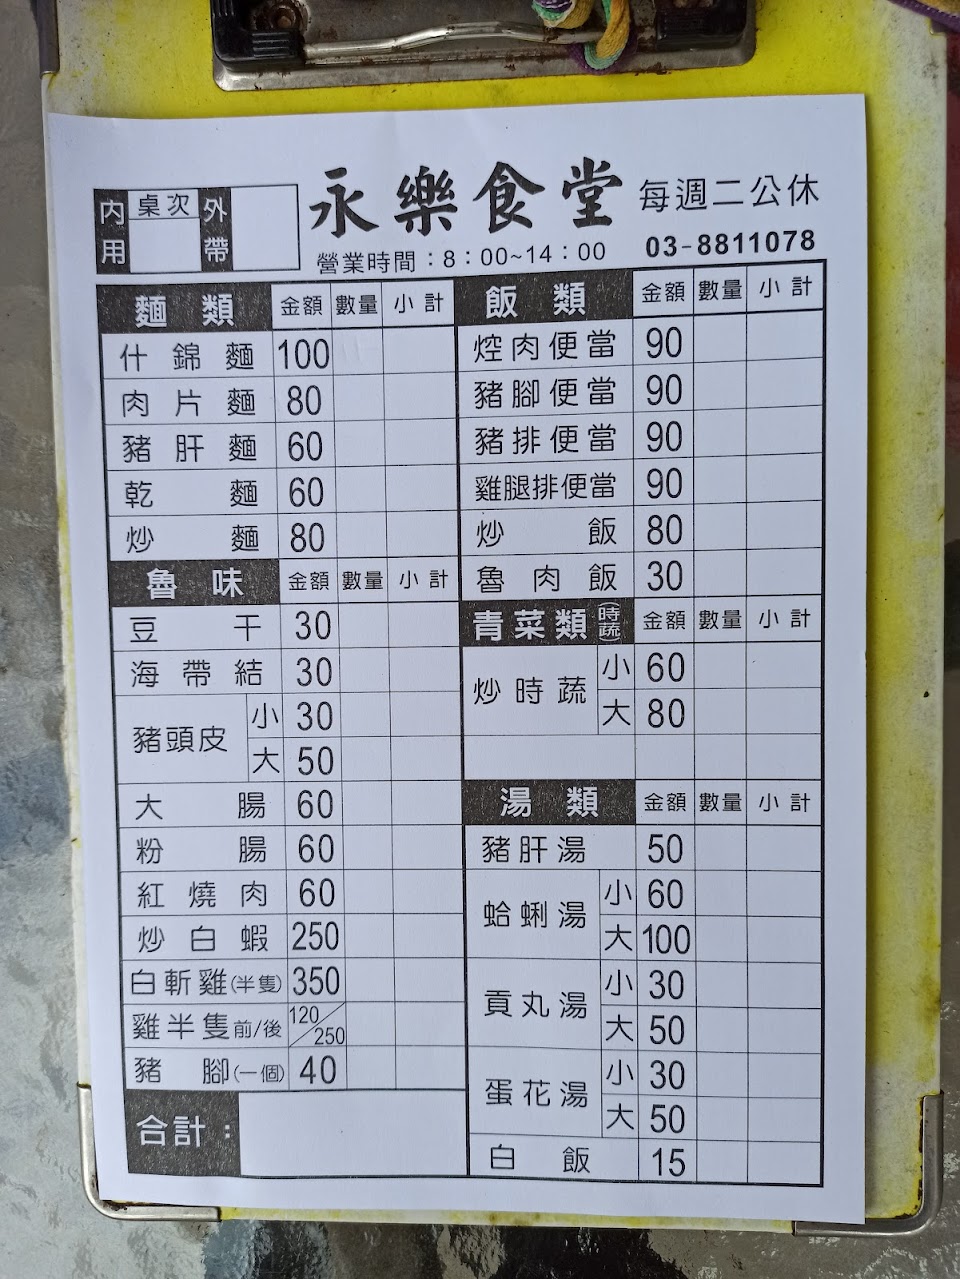 內用 桌次 外帶
永樂食堂 每週二公休
營業時間：8：00~14：00 03-8811078
麵類 金額 數量 小計
什錦麵 100
肉片麵 80
豬肝麵 60
乾麵 60
炒麵 80
魯味 金額 數量 小計
豆干 30
海帶結 30
豬頭皮 小 30
大 50
大腸 60
粉腸 60
紅燒肉 60
炒白蝦 250
白斬雞(半隻) 350
雞半隻前/後 120/250
豬腳(一個) 40
合計：
飯類 金額 數量 小計
焢肉便當 90
豬腳便當 90
豬排便當 90
雞腿排便當 90
炒飯 80
魯肉飯 30
青菜類(時蔬) 金額 數量 小計
炒時蔬 小 60
大 80
湯類 金額 數量 小計
豬肝湯 50
蛤蜊湯 小 60
大 100
貢丸湯 小 30
大 50
蛋花湯 小 30
大 50
白飯 15